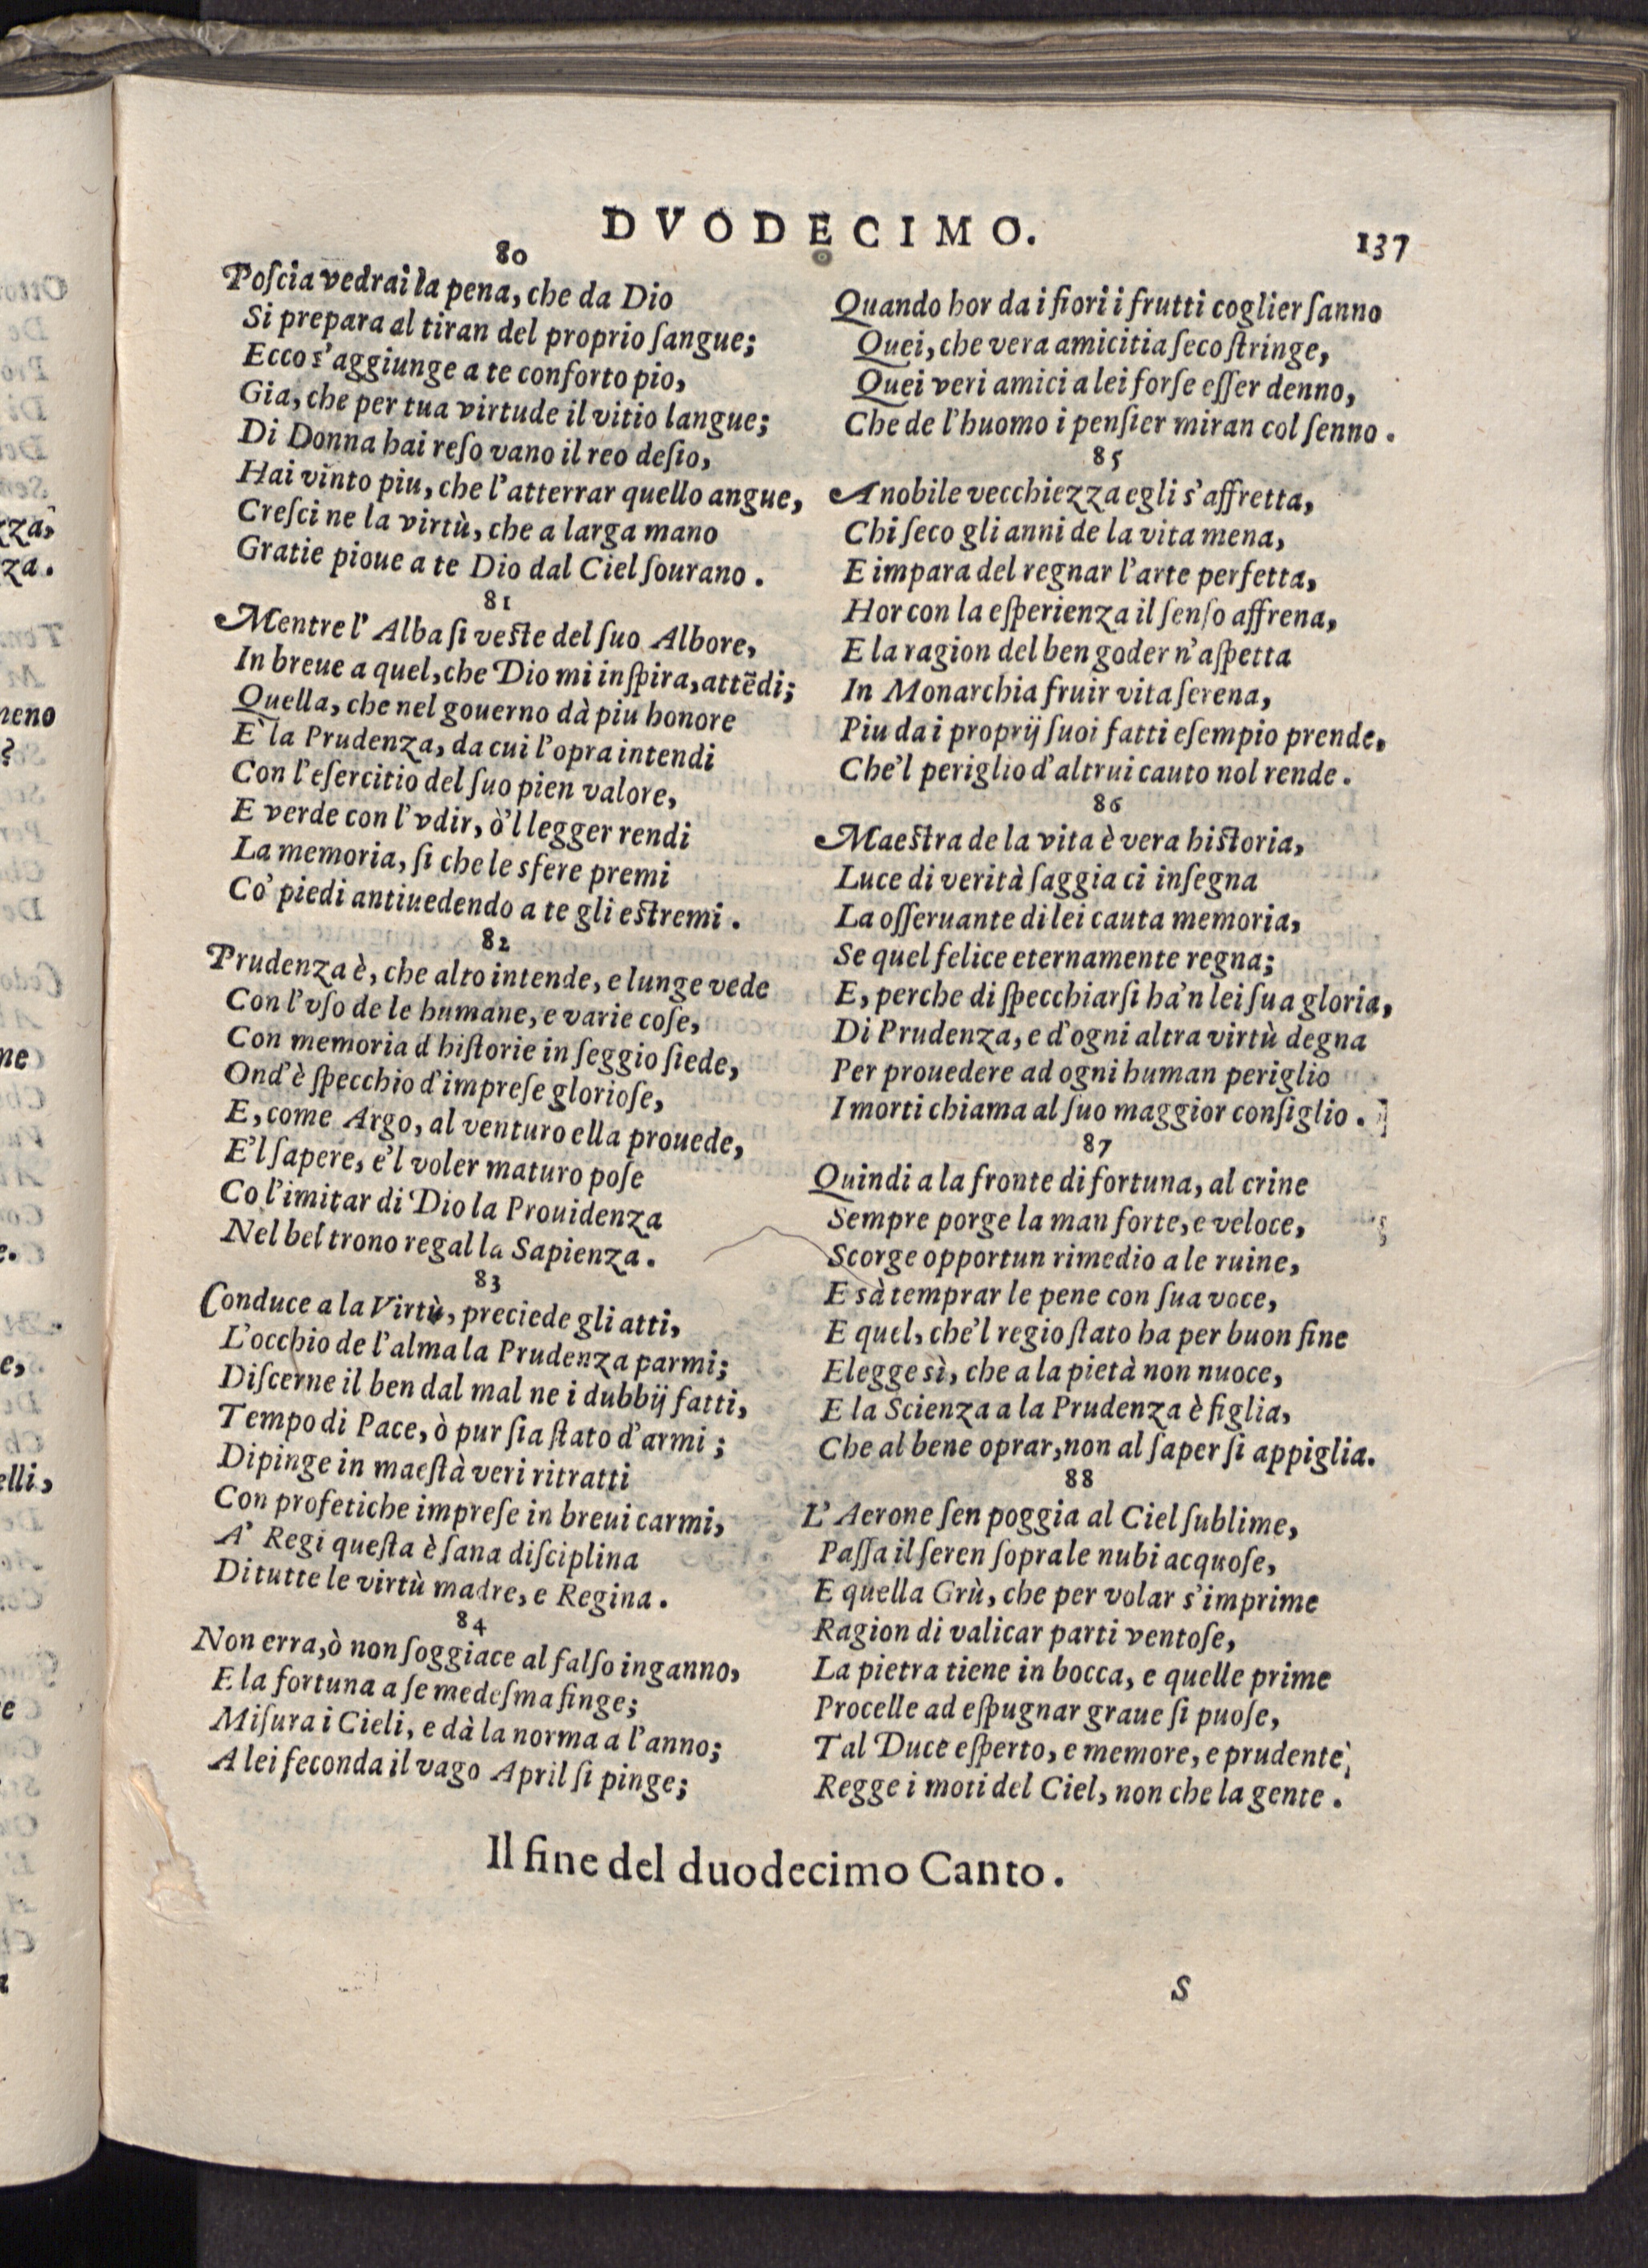 DVODECIMO.
137
80
Poſcia vedrai la pena, che da Dio
Si prepara al tiran del proprio ſangue;
Ecco s'aggiunge a te conforto pio,
Gia, che per tua virtude il vitio langue;
Di Donna hai reſo vano il reo deſio,
Hai vinto piu, che l'atterrar quello angue,
Creſci ne la virtù, che a larga mano
Gratie pioue a te Dio dal Ciel ſourano.
81
Mentre l'Alba ſi veſte del ſuo Albore,
In breue a quel, che Dio mi inſpira, attẽdi;
Quella, che nel gouerno dà piu honore
È la Prudenza, da cui l'opra intendi
Con l'eſercitio del ſuo pien valore,
E verde con l'vdir, ò'l legger rendi
La memoria, ſi che le sfere premi
Co' piedi antiuedendo a te gli eſtremi.
82
Prudenza è, che alto intende, e lunge vede
Con l'vſo de le humane, e varie coſe,
Con memoria d'hiſtorie in ſeggio ſiede,
Ond'è ſpecchio d'impreſe glorioſe,
E, come Argo, al venturo ella prouede,
E'l ſapere, e'l voler maturo poſe
Co l'imitar di Dio la Prouidenza
Nel bel trono regal la Sapienza.
83
Conduce a la Virtù, preciede gli atti,
L'occhio de l'alma la Prudenza parmi;
Diſcerne il ben dal mal ne i dubbij fatti,
Tempo di Pace, ò pur ſia ſtato d'armi;
Dipinge in maeſtà veri ritratti
Con profetiche impreſe in breui carmi,
A' Regi queſta è ſana diſciplina
Di tutte le virtù madre, e Regina.
84
Non erra, ò non ſoggiace al falſo inganno,
E la fortuna a ſe medeſma finge;
Miſura i Cieli, e dà la norma a l'anno;
A lei feconda il vago April ſi pinge;
Quando hor da i fiori i frutti coglier ſanno
Quei, che vera amicitia ſeco ſtringe,
Quei veri amici a lei forſe eſſer denno,
Che de l'huomo i penſier miran col ſenno.
85
A nobile vecchiezza egli s'affretta,
Chi ſeco gli anni de la vita mena,
E impara del regnar l'arte perfetta,
Hor con la eſperienza il ſenſo affrena,
E la ragion del ben goder n'aſpetta
In Monarchia fruir vita ſerena,
Piu da i proprij ſuoi fatti eſempio prende,
Che'l periglio d'altrui cauto nol rende.
86
Maeſtra de la vita è vera hiſtoria,
Luce di verità ſaggia ci inſegna
La oſſeruante di lei cauta memoria,
Se quel felice eternamente regna;
E, perche di ſpecchiarſi ha'n lei ſua gloria,
Di Prudenza, e d'ogni altra virtù degna
Per prouedere ad ogni human periglio
I morti chiama al ſuo maggior conſiglio.
87
Quindi a la fronte di fortuna, al crine
Sempre porge la man forte, e veloce,
Scorge opportun rimedio a le ruine,
E sà temprar le pene con ſua voce,
E quel, che'l regio ſtato ha per buon fine
Elegge sì, che a la pietà non nuoce,
E la Scienza a la Prudenza è figlia,
Che al bene oprar, non al ſaper ſi appiglia.
88
L'Aerone ſen poggia al Ciel ſublime,
Paſſa il ſeren ſopra le nubi acquoſe,
E quella Grù, che per volar s'imprime
Ragion di valicar parti ventoſe,
La pietra tiene in bocca, e quelle prime
Procelle ad eſpugnar graue ſi puoſe,
Tal Duce eſperto, e memore, e prudente,
Regge i moti del Ciel, non che la gente.
Il fine del duodecimo Canto.
S